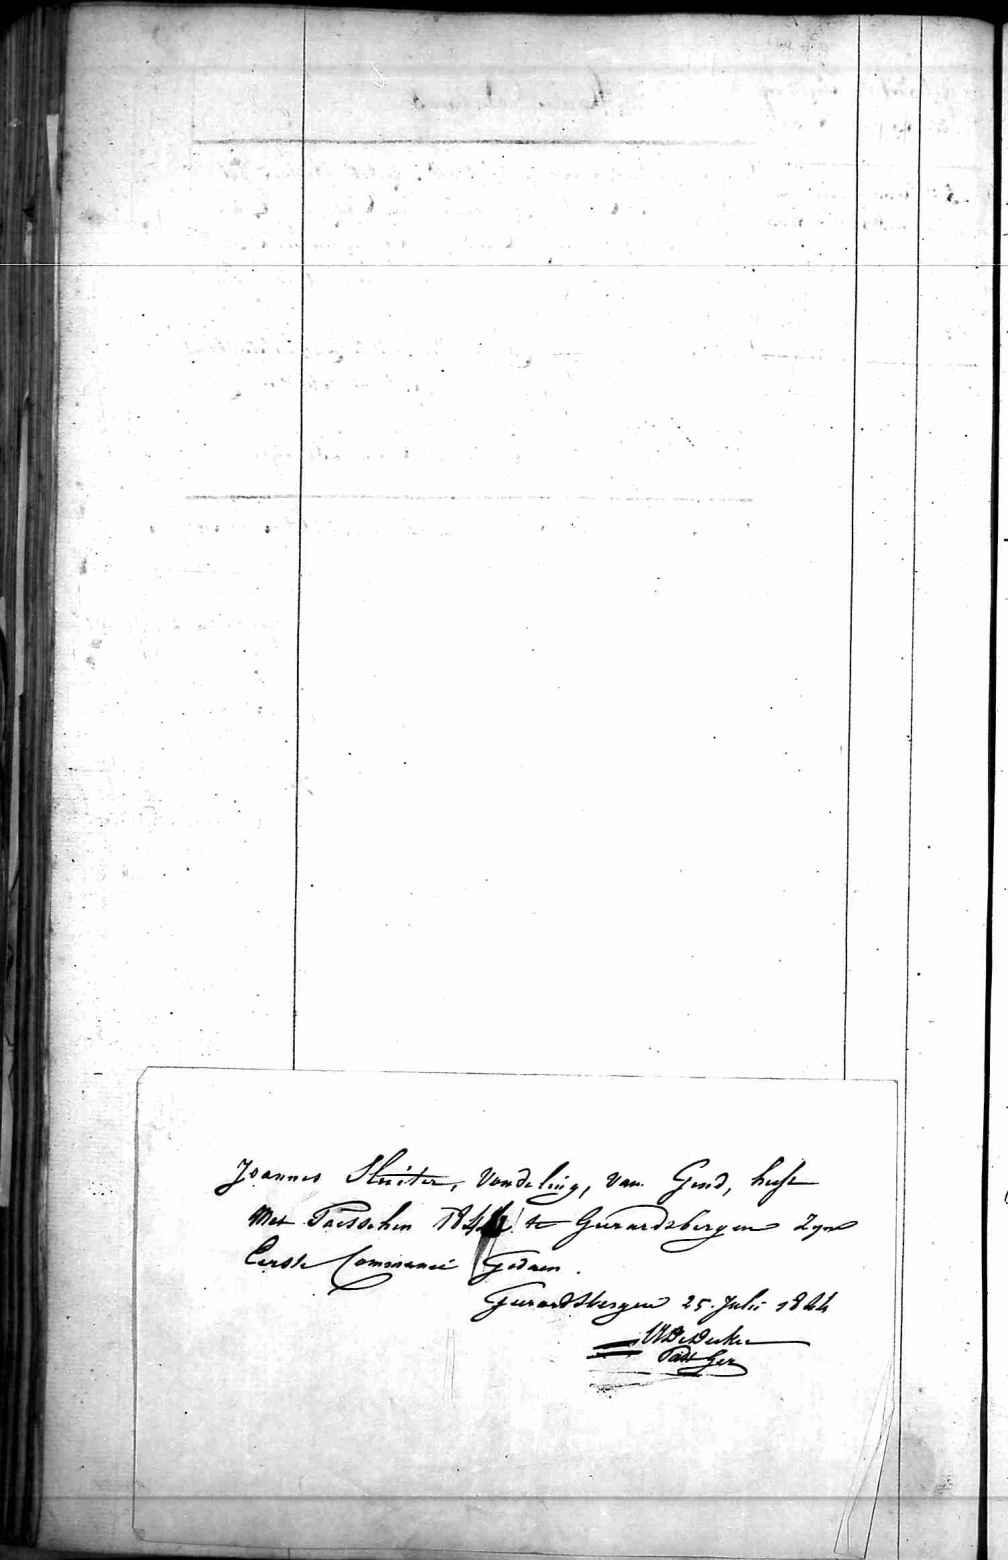 Joannes Sluiter, vondeling, van Gend, heeft
Met Paesschen 1844 te Geerardsbergen Zyne
Eerste Communie Gedaen.
Geerardsbergen 25. Julii 1844
De Decker
Past Ger